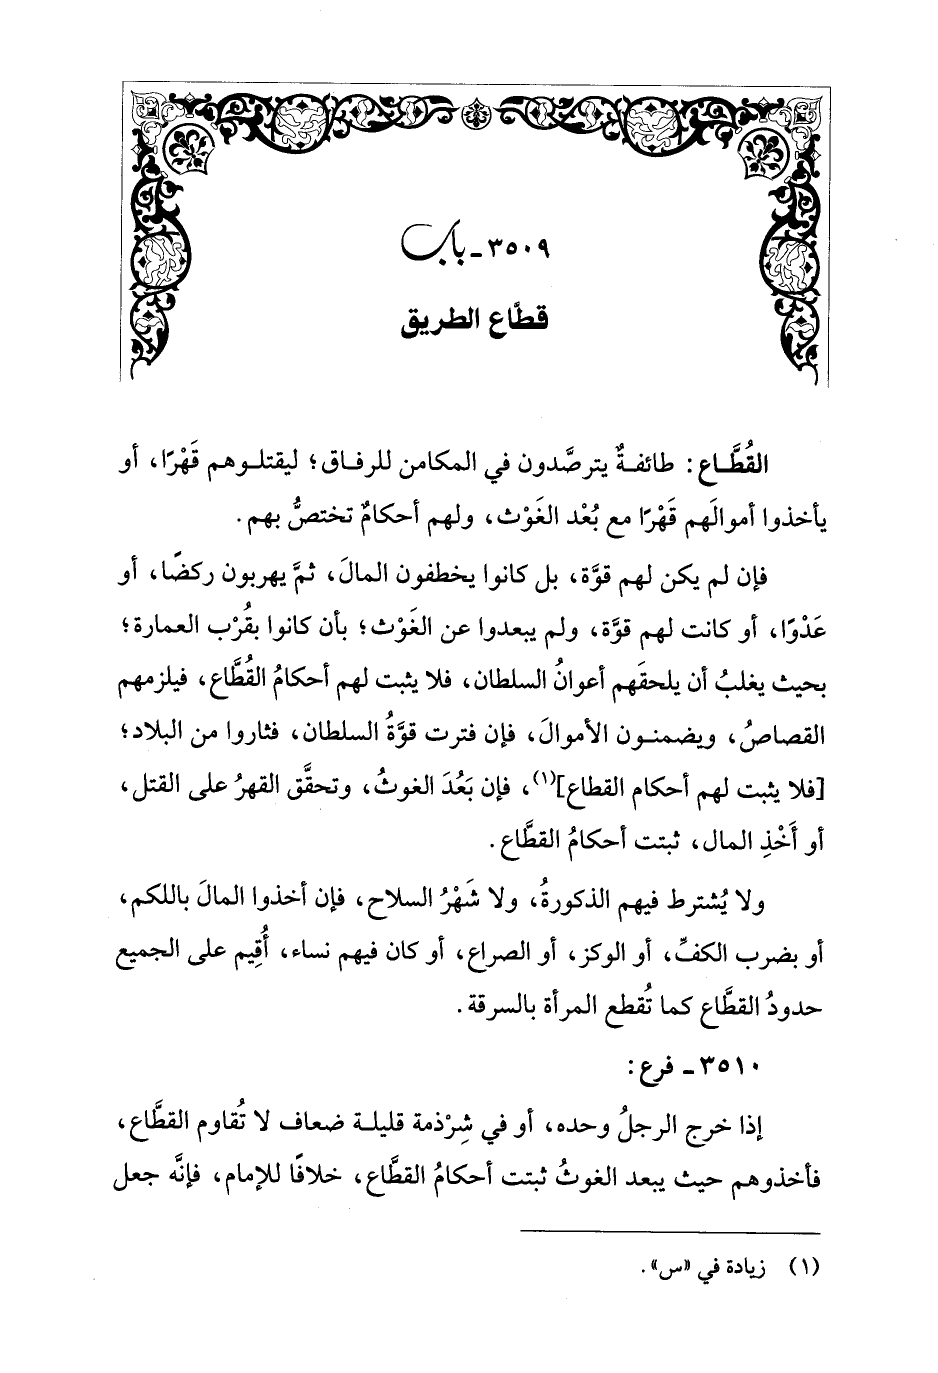 ٣٥٠٩ ـ باب
قطَّاع الطريق
القُطَّاع: طائفةٌ يترصَّدون في المكامن للرفاق؛ ليقتلوهم قَهْرًا، أو
يأخذوا أموالَهم قَهْرًا مع بُعْد الغَوْث، ولهم أحكامٌ تختصُّ بهم.
فإن لم يكن لهم قوَّة، بل كانوا يخطفون المالَ، ثمَّ يهربون ركضًا، أو
عَدْوًا، أو كانت لهم قوَّة، ولم يبعدوا عن الغَوْث؛ بأن كانوا بقُرْب العمارة؛
بحيث يغلبُ أن يلحقَهم أعوانُ السلطان، فلا يثبت لهم أحكامُ القُطَّاع، فيلزمهم
القصاصُ، ويضمنون الأموالَ، فإن فترت قوَّةُ السلطان، فثاروا من البلاد؛
[فلا يثبت لهم أحكام القطاع](١)، فإن بَعُدَ الغوثُ، وتحقَّق القهرُ على القتل،
أو أَخْذِ المال، ثبتت أحكامُ القطَّاع.
ولا يُشترط فيهم الذكورةُ، ولا شَهْرُ السلاح، فإن أخذوا المالَ باللكم،
أو بضرب الكفِّ، أو الوكز، أو الصراع، أو كان فيهم نساء، أُقِيم على الجميع
حدودُ القطَّاع كما تُقطع المرأة بالسرقة.
٣٥١٠ ـ فرع:
إذا خرج الرجلُ وحده، أو في شِرْذمة قليلة ضعاف لا تُقاوم القطَّاع،
فأخذوهم حيث يبعد الغوثُ ثبتت أحكامُ القطَّاع، خلافًا للإمام، فإنَّه جعل
(١) زيادة في «س».